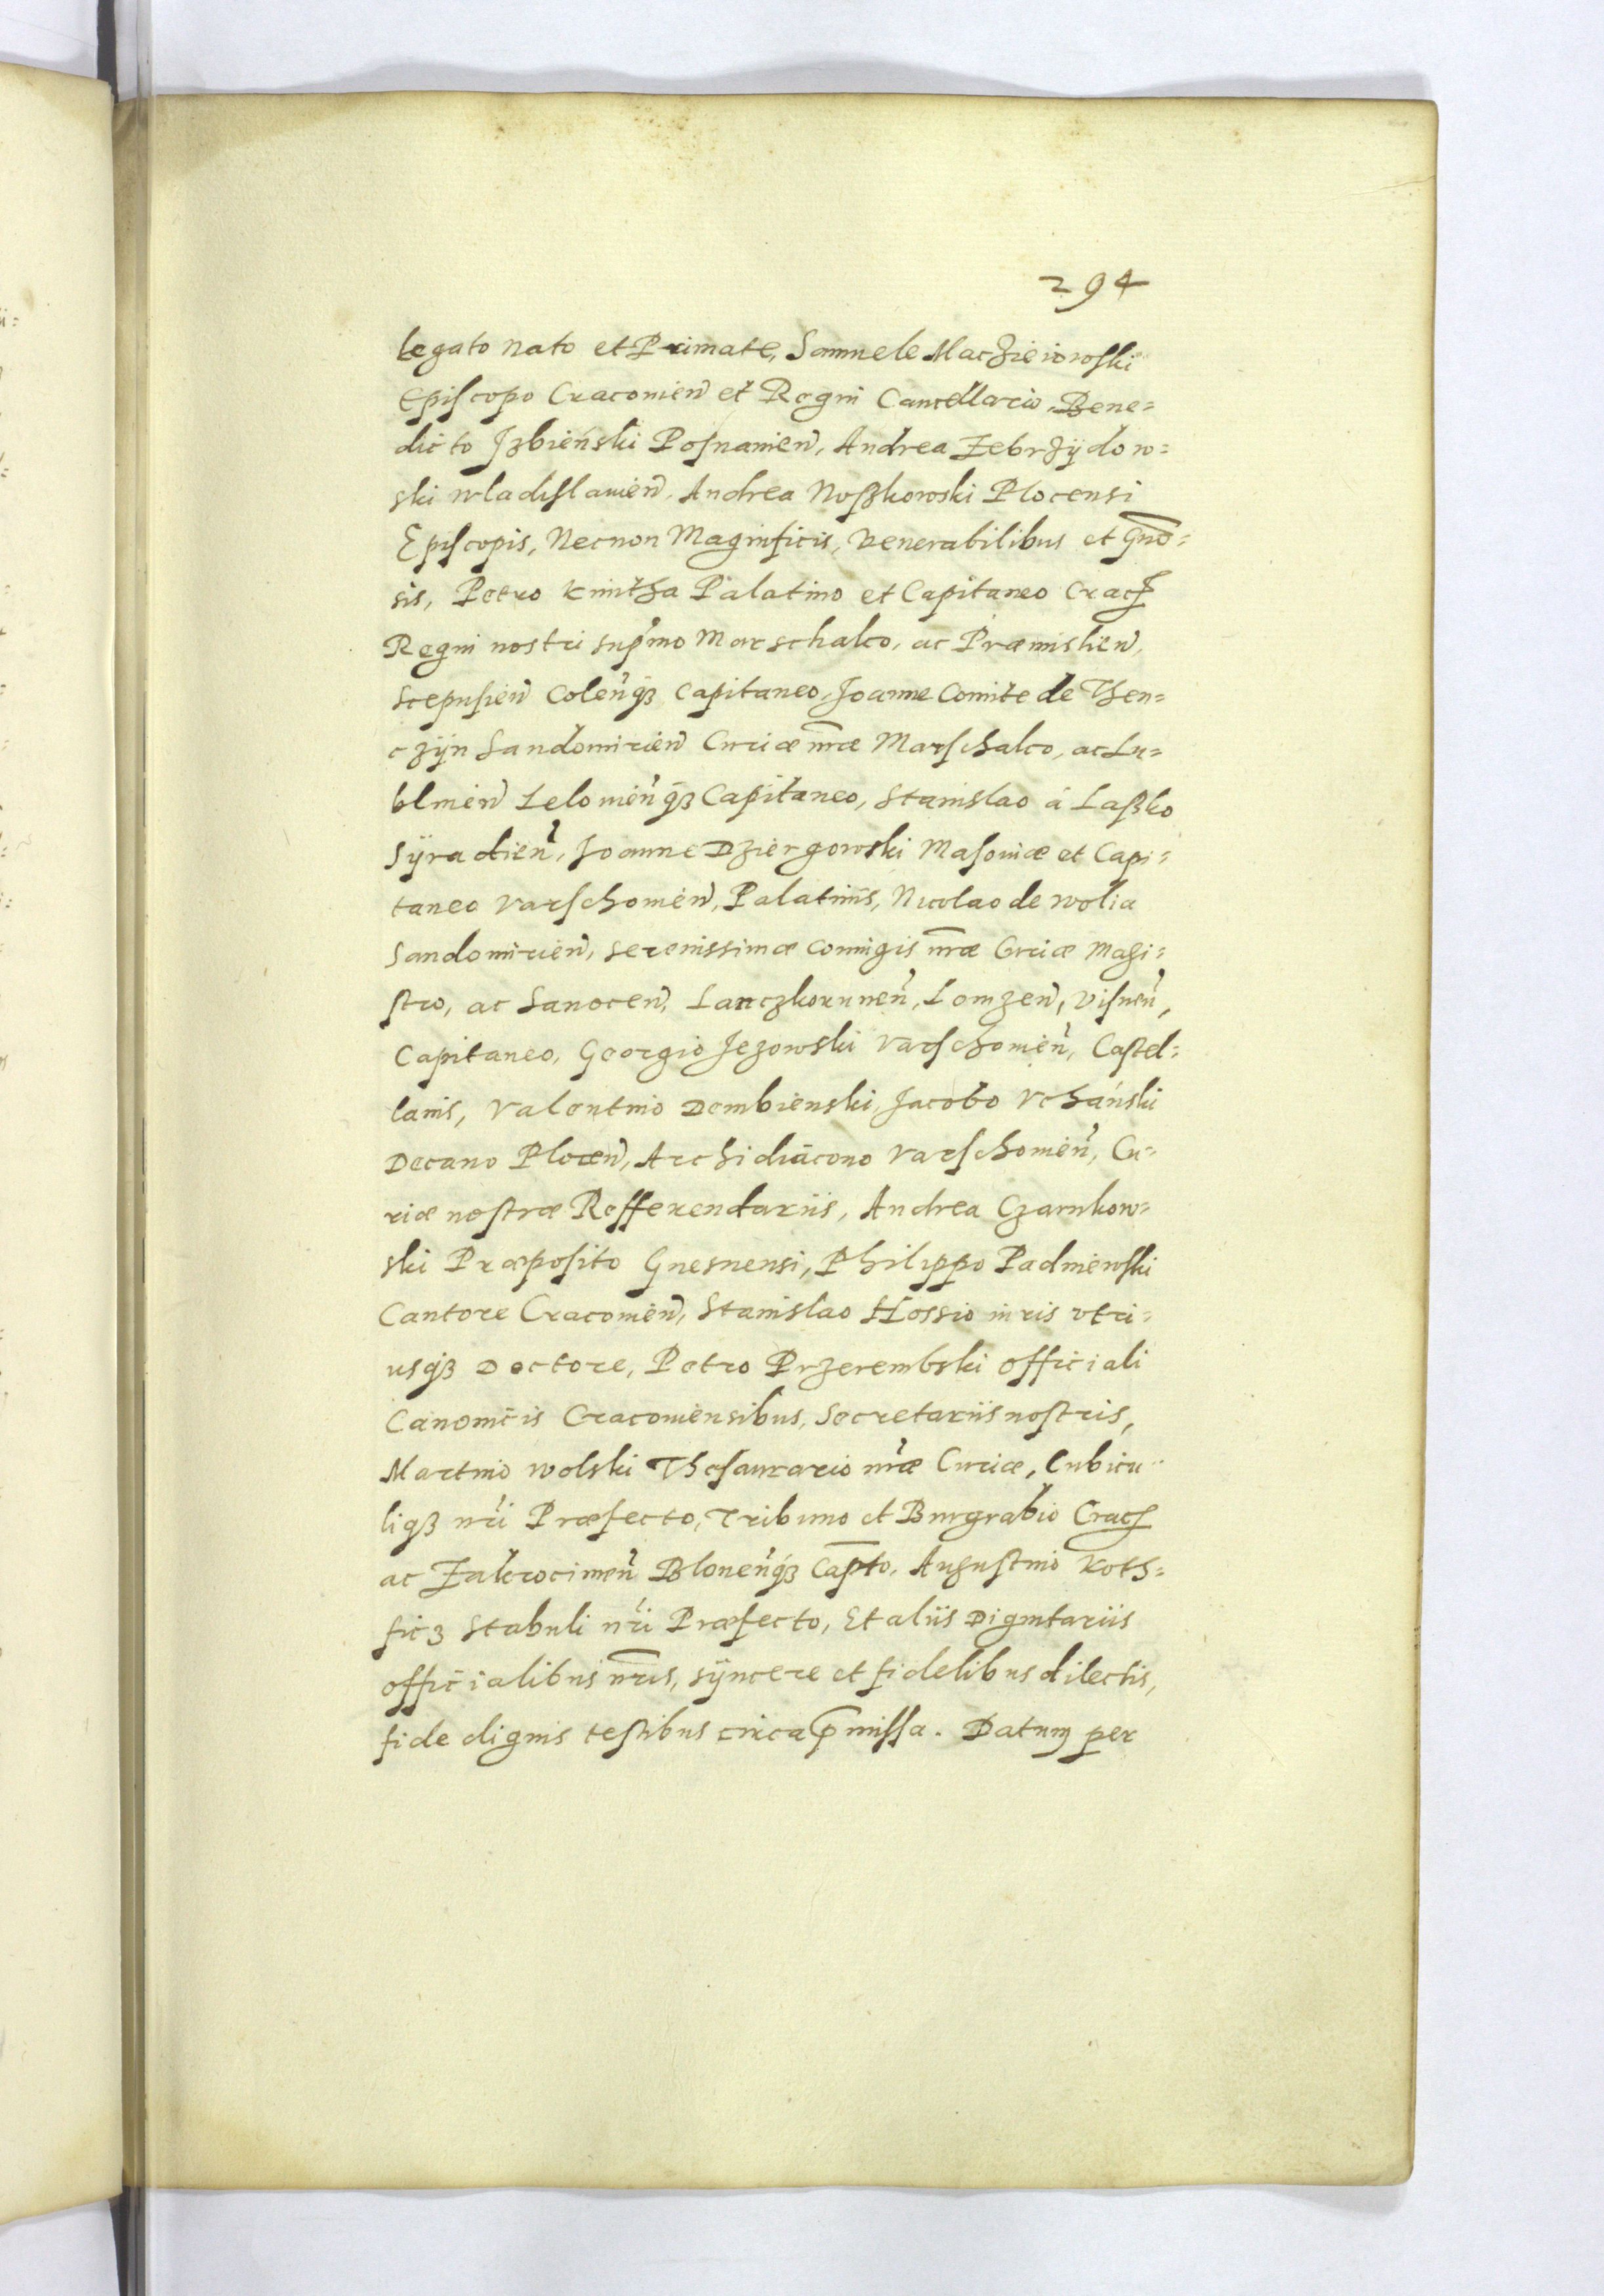 294
legato nato et Primate, Samuele Macʒieiowski
Episcopo Cracouien̄ et Regni Cancellario, Bene=
dicto Jzbieński Posnanien̄, Andrea Zebrzÿdow=
ski wladislauien̄, Andrea Noſzkowski Plocensi
Episcopis, Necnon Magnificis, Venerabilibus et Gno̅=
sis, Petro Kmitha Palatino et Capitaneo Crac̨
Regni nostri sup̃mo Marschalco, ac Præmislien̄,
Scepusien̄ Colen̄q́ʒ Capitaneo, Joanne Comite de Then=
czÿn Sandomirien̄ Curiæ nr̅æ Marschalco, ac Lu=
blinen̄ Lelouien̄q́ʒ Capitaneo, Stanislao à Laſzko
Sÿradien̄, Joanne Dziergowski Masouiæ et Capi=
taneo Varschouien̄, Palatinis, Nicolao de wolia
Sandomirien̄, Serenissimæ Coniugis nr̅æ Curiæ Magi=
stro, ac Sanocen̄, Lanczkorunen̄, Lomzen̄, Visnen̄,
Capitaneo, Georgio Jezowski Varschouien̄, Castel=
lanis, Valentino Dembienski, Jacobo Vcháński
Decano Plocen̄, Archidiacono Varschouien̄, Cu=
riæ nostræ Refferendariis, Andrea Czarnkow=
ski Præposito Gnesnensi, Philippo Padniewski
Cantore Cracouien̄, Stanislao Hossio iuris vtri=
usq́ʒ Doctore, Petro Przerembski officiali
Canonicis Cracouiensibus, Secretariis nostris,
Martino wolski Thesaurario nr̅æ Curiæ, Cubicu=
liqʒ nr̅i Præfecto, Tribuno et Burgrabio Crac̨
ac Zakrocimen̄ Blonen̄q́ʒ Cap̅to, Augustino Koth=
ficz Stabuli nr̅i Præfecto, Et aliis Dignitariis
officialibus nr̅is, sÿncere et fidelibus dilectis,
fide dignis testibus circa p̅missa. Datum per